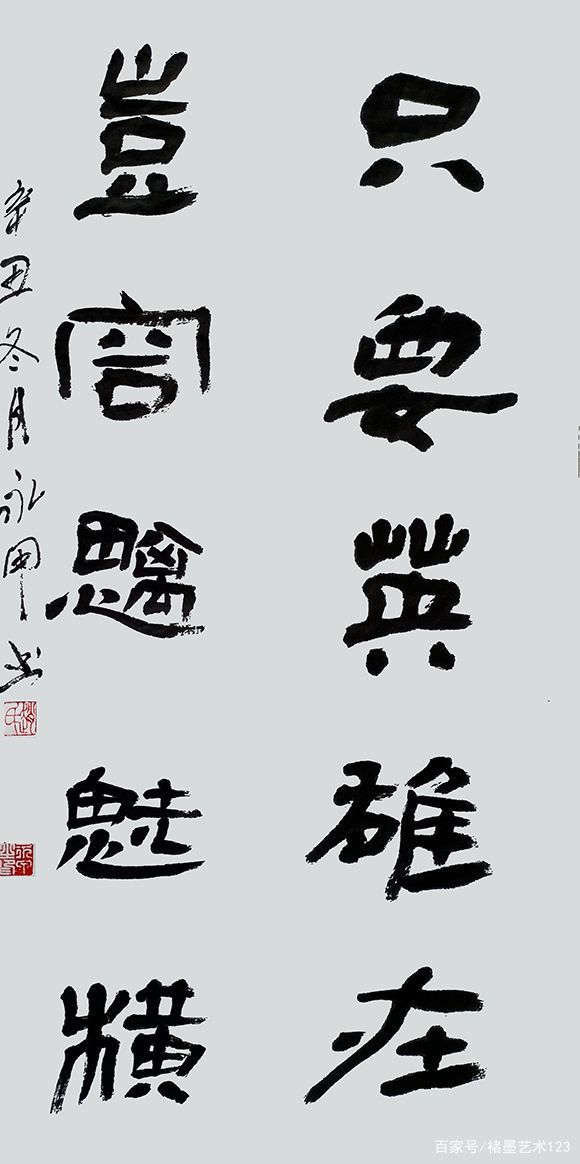 只要英雄在
豈容魑魅橫
辛丑冬月永甲书
百家号/楮墨艺术123